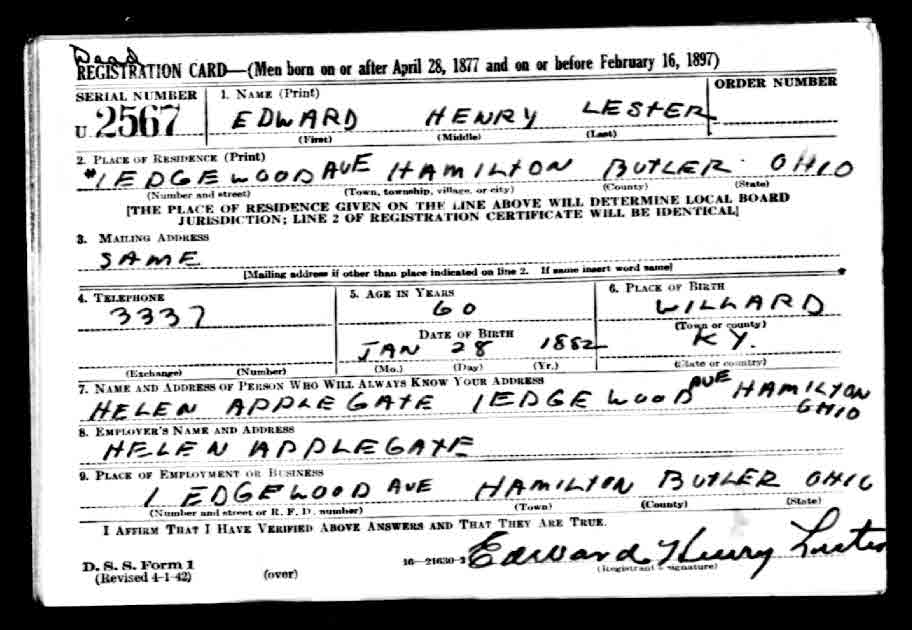 Dead
REGISTRATION CARD—(Men born on or after April 28, 1877 and on or before February 16, 1897)
SERIAL NUMBER 1. NAME (Print) ORDER NUMBER
U 2567 EDWARD HENRY LESTER
(First) (Middle) (Last)
2. PLACE OF RESIDENCE (Print)
#1 EDGEWOOD AVE HAMILTON BUTLER OHIO
(Number and street) (Town, township, village, or city) (County) (State)
[THE PLACE OF RESIDENCE GIVEN ON THE LINE ABOVE WILL DETERMINE LOCAL BOARD
JURISDICTION; LINE 2 OF REGISTRATION CERTIFICATE WILL BE IDENTICAL]
3. MAILING ADDRESS
SAME
[Mailing address if other than place indicated on line 2. If same insert word same]
4. TELEPHONE 5. AGE IN YEARS 6. PLACE OF BIRTH
3337 60 WILLARD
DATE OF BIRTH (Town or county)
JAN 28 1882 KY.
(Exchange) (Number) (Mo.) (Day) (Yr.) (State or country)
7. NAME AND ADDRESS OF PERSON WHO WILL ALWAYS KNOW YOUR ADDRESS
HELEN APPLEGATE 1 EDGEWOOD AVE HAMILTON
OHIO
8. EMPLOYER'S NAME AND ADDRESS
HELEN APPLEGATE
9. PLACE OF EMPLOYMENT OR BUSINESS
1 EDGEWOOD AVE HAMILTON BUTLER OHIO
(Number and street or R. F. D. number) (Town) (County) (State)
I AFFIRM THAT I HAVE VERIFIED ABOVE ANSWERS AND THAT THEY ARE TRUE.
D. S. S. Form 1
(Revised 4-1-42) (over) 16—21630-2 Edward Henry Lester
(Registrant's signature)